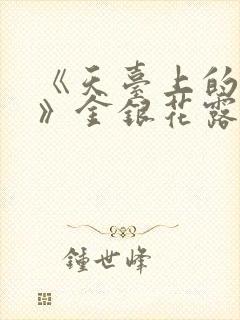 《天臺上的
》金銀花露
鍾世峰